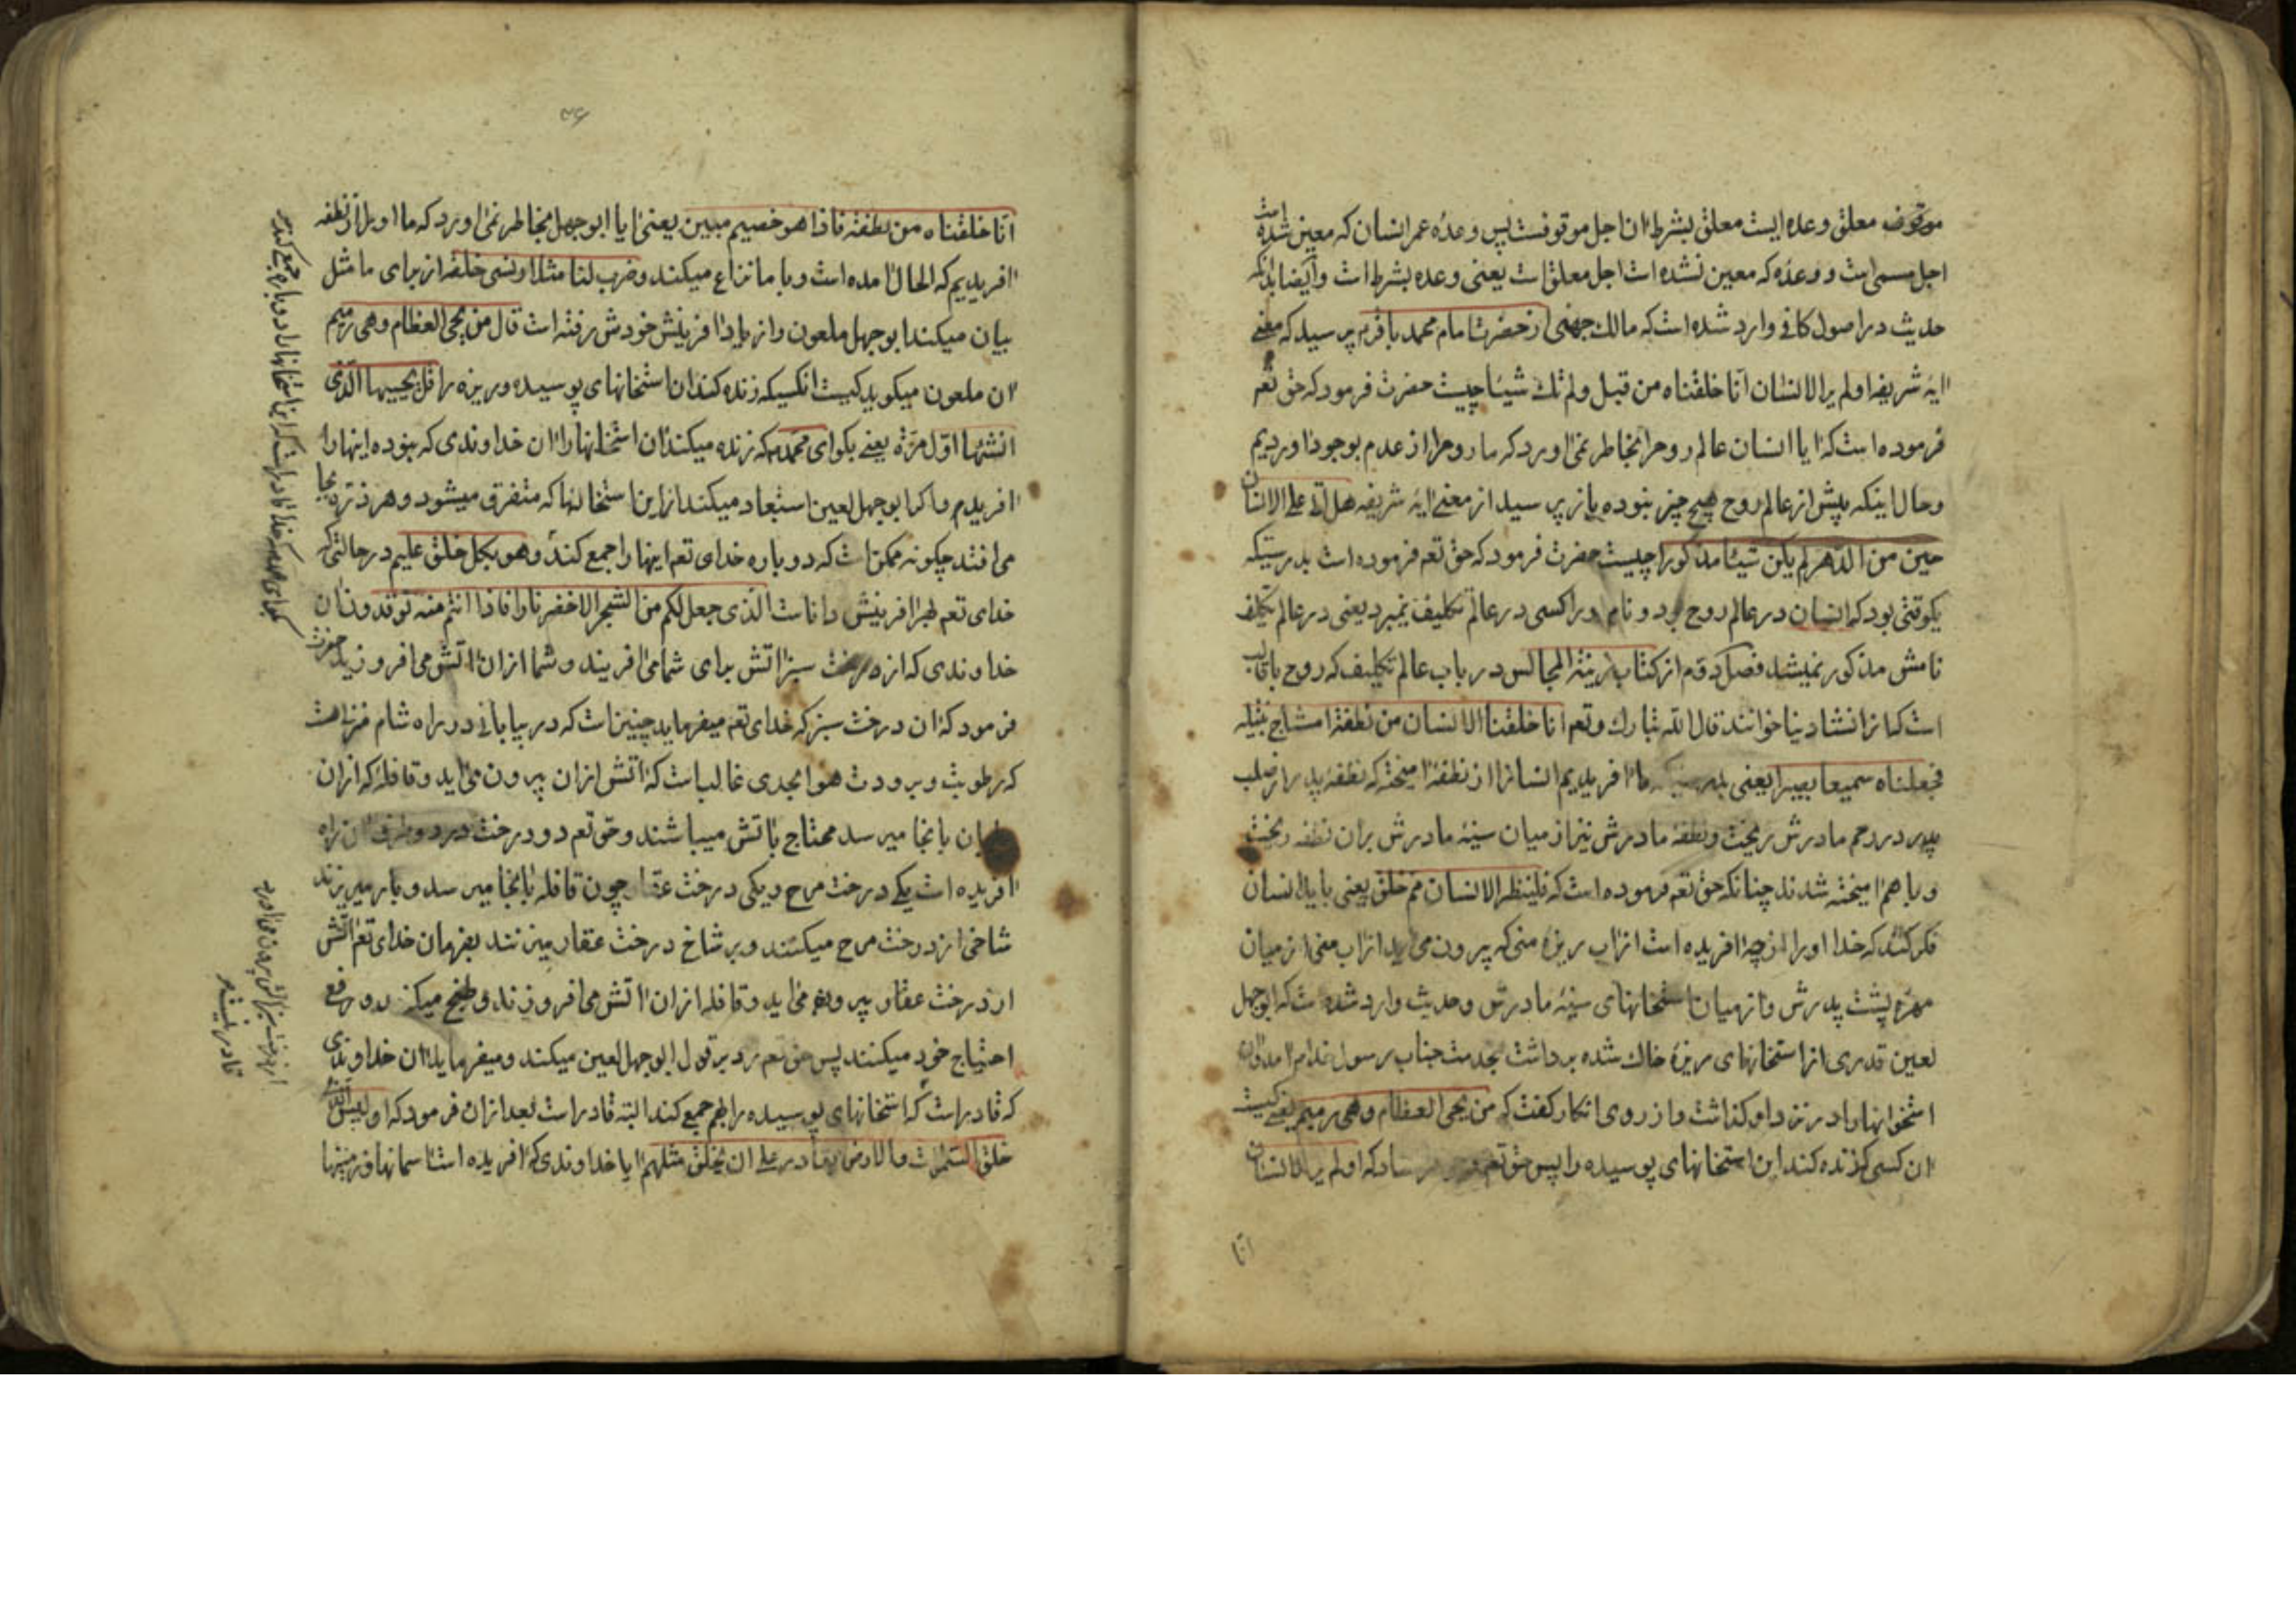 موقوف معلق وعده ایست معلق بشرط ان اجل موقوفست پس وعدۀ عمر انسان که معین شده است
اجل مسمی است و وعدۀ که معین نشده است اجل معلق است یعنی وعده بشرط است وایضا بدانکه
حدیث در اصول کافی وارد شده است که مالک جهنی از حضرت امام محمد باقرم پرسید که معنی
ایۀ شریفه اولم یرالانسان انا خلقناه من قبل ولم تک شیئا چیست حضرت فرمود که حق تعم
فرموده است که ایا انسان عالم روح را بخاطر نمی اورد که ما روح را از عدم بوجود اوردیم
وحال اینکه پیش از عالم روح هیچ چیز نبوده باز پرسید از معنی ایۀ شریفه هل اتی علی الانسان
حین من الدهر لم یکن شیئا مذکورا چیست حضرت فرمود که حق تعم فرموده است بدرستیکه
یکوقتی بود که انسان در عالم روح بود و نام ورا کسی در عالم تکلیف نمیبرد یعنی در عالم تکلیف
نامش مذکور نمیشد فصل دوم از کتاب زینة المجالس در باب عالم تکلیف که روح با قالب
است که انرا نشاء دنیا خوانند قال الله تبارک وتعم انا خلقنا الانسان من نطفة امشاج نبتیله
فجعلناه سمیعا بصیرا یعنی بدرستیکه ما افریدیم انسانرا از نطفۀ امیخته که نطفۀ پدر را از صلب
پدر در رحم مادرش ریخت ونطفۀ مادرش نیز از میان سینۀ مادرش بران نطفه ریخت
وباهم امیخته شدند چنانکه حق تعم فرموده است که فلینظر الانسان مم خلق یعنی باید انسان
فکر کند که خدا او را از چه افریده است از اب ریزۀ منی که بیرون می اید از اب منی از میان
مهرۀ پشت پدرش واز میان استخانهای سینۀ مادرش وحدیث وارد شده است که ابوجهل
لعین قدری از استخانهای ریزۀ خاک شده برداشت بخدمت جناب رسول خدام امد وان
استخوانها را در نزد او گذاشت واز روی انکار گفت که من یحی العظام وهی رمیم یعنی کیست
ان کسی که زنده کند این استخانهای پوسیده را پس حق تعم فرستاد که اولم یرالانسان
انا
۳۶
انا خلقناه من نطفة فاذا هو خصیم مبین یعنی ایا ابوجهل بخاطر نمی اورد که ما او را از نطفه
افریدیم که الحال امده است وبا ما نزاع میکند وضرب لنا مثلا ونسی خلقه از برای ما مثل
بیان میکند ابوجهل ملعون واز یاد افرینش خودش رفته است قال من یحی العظام وهی رمیم
ان ملعون میکوید کیست انکسیکه زنده کند ان استخانهای پوسیده وریزه را قل یحییها الذی
انشاها اول مرة یعنی بکو ای محمدم که زنده میکند ان استخانها را ان خداوندی که نبوده اینها را
افریدم ما کرا بوجهل لعین استبعاد میکند از این استخانها که متفرق میشود وهر ذره بجا
می افتد چگونه ممکن است که دوباره خدای تعم اینها را جمع کند وهو بکل خلق علیم در حالتی که
خدای تعم بهر افرینش داناست الذی جعل لکم من الشجر الاخضر نارا فاذا انتم منه توقدون ان
خداوندی که از درخت سبز اتش برای شما می افریند وشما از ان اتش می افروزید حضرت
فرمود که ان درخت سبز که خدای تعم میفرماید چنین است که در بیابانی در راه شام منزلهست
که رطوبت وبرودت هوا بحدی غالب است که اتش از ان بیرون می اید وقافلۀ که از ان
بان بانجا میرسد محتاج باتش میباشند وحق تعم دو درخت در دو طرف ان راه
افریده است یکی درخت مرح ویکی درخت عقار چون قافله بانجا میرسد وبار میریزند
شاخی از درخت مرح میکنند وبر شاخ درخت عقار میزنند بفرمان خدای تعم اتش
از درخت عقار بیرون می اید وقافله از ان اتش می افروزند وطبخ میکنند ورفع
احتیاج خود میکنند پس حق تعم رد بر قول ابوجهل لعین میکند ومیفرماید ان خداوندی
که قادر است که استخانهای پوسیده را بهم جمع کند البته قادر است بعد از ان فرمود که اولیس الذی
خلق السموات والارض بقادر علی ان یخلق مثلهم ایا خداوندی که افریده است اسمانها وزمینها
بکو ای محمد که خدا قادر است که این استخانها را دوباره جمع کند
از درخت سبز اتش بیرون می اورد
قادر نیست